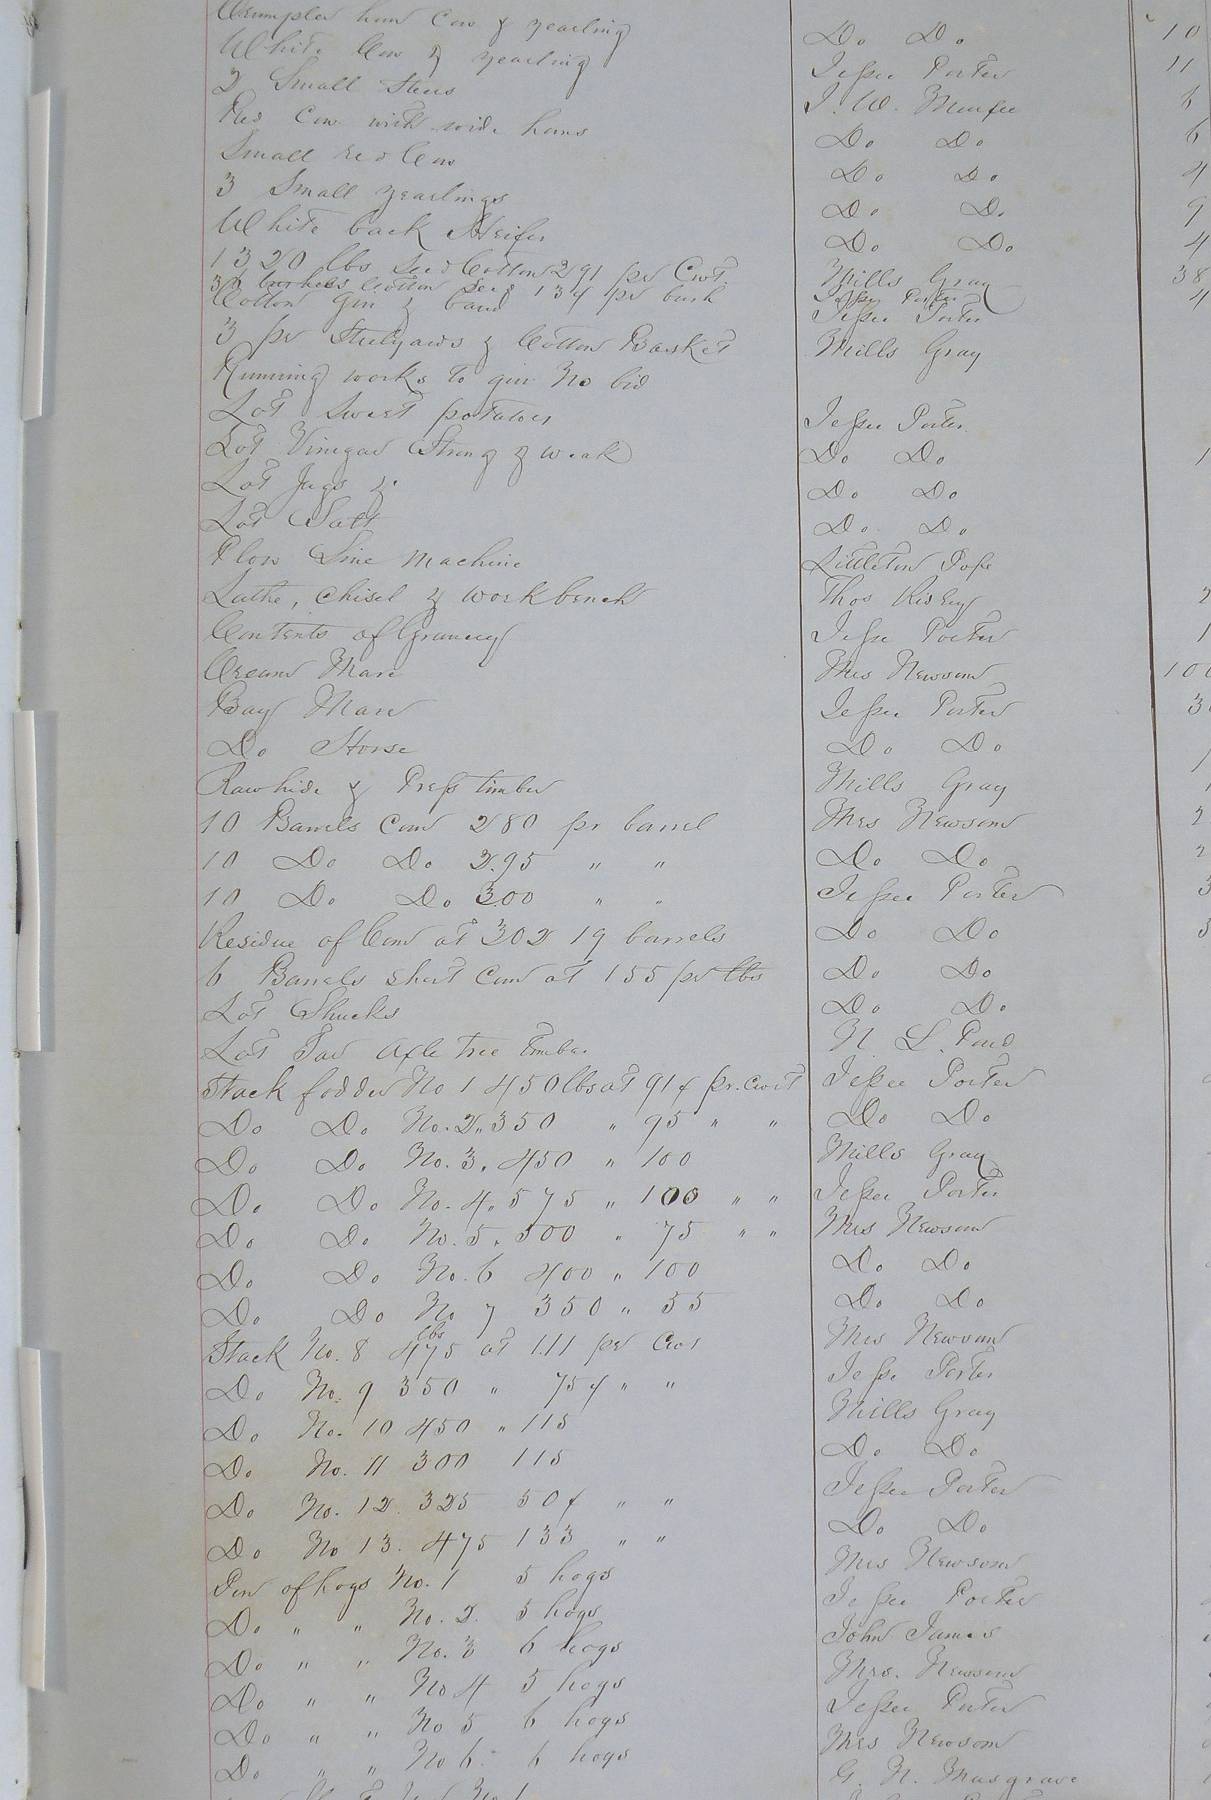 Crumpled horn Cow & yearling Do Do 10
White Cow & yearling Jessee Porter 11
2 Small Steers J. W. Murfee 6
Red Cow with wide horns Do Do 6
Small red Cow Do Do 4
3 Small yearlings Do Do 9
White back Heifer Do Do 4
1320 lbs Seed Cotton 291 pr Cwt. Mills Gray 38
30 bushels Cotton Seed 13¢ pr bush Jessee Porter 4
Cotton gin & band Jessee Porter
3 pr Steelyards & Cotton Basket Mills Gray
Running works to gin No bid
Lot Sweet potatoes Jessee Porter.
Lot Vinegar Strong & weak Do Do 1
Lot Jugs &c Do Do
Lot Salt Do Do
Plow Line Machine Littleton Pope
Lathe, Chisel & work bench Thos 2
Contents of Granary Jesse Porter 1
Cream Mare Mrs Newsom 100
Bay Mare Jessee Porter 3
Do Horse Do Do 1
Rawhide & Press timber Mills Gray 1
10 Barrels Corn 280 pr barrel Mrs Newsom 2
10 Do Do 2.95 " " Do Do 2
10 Do Do 300 " " Jessee Porter 3
Residue of Corn at 302 19 barrels Do Do 5
6 Barrels short Corn at 155 pr lbs Do Do
Lot Shucks Do Do
Lot Tar Axle tree timber N. L. Pond
Stack fodder No 1 450 lbs at 91¢ pr. Cwt Jessee Porter
Do Do No. 2. 350 " 95 " " Do Do
Do Do No. 3. 450 " 100 Mills Gray
Do. Do No. 4. 575 " 100 " " Jessee Porter
Do Do No. 5. 500 " 75 " " Mrs Newsom
Do. Do No. 6 400 " 100 Do Do
Do. Do No 7 350 " 55 Do Do
Stack No. 8 475 lbs at 1.11 per Cwt Mrs Newsom
Do No. 9 350 " 75¢ " " Jesse Porter
Do No. 10 450 " 115 Mills Gray
Do No. 11 300 115 Do Do
Do No. 12. 325 50¢ " " Jessee Porter
Do No 13. 475 133 " " Do Do
Pen of hogs No. 1 5 hogs Mrs Newsom
Do " " No. 2. 5 hogs Jessee Porter
Do " " No. 3 6 hogs John James
Do " " No 4 5 hogs Mrs. Newsom
Do " " No 5 6 hogs Jessee Porter
Do " " No 6. 6 hogs Mrs Newsom
G. N. Musgrave